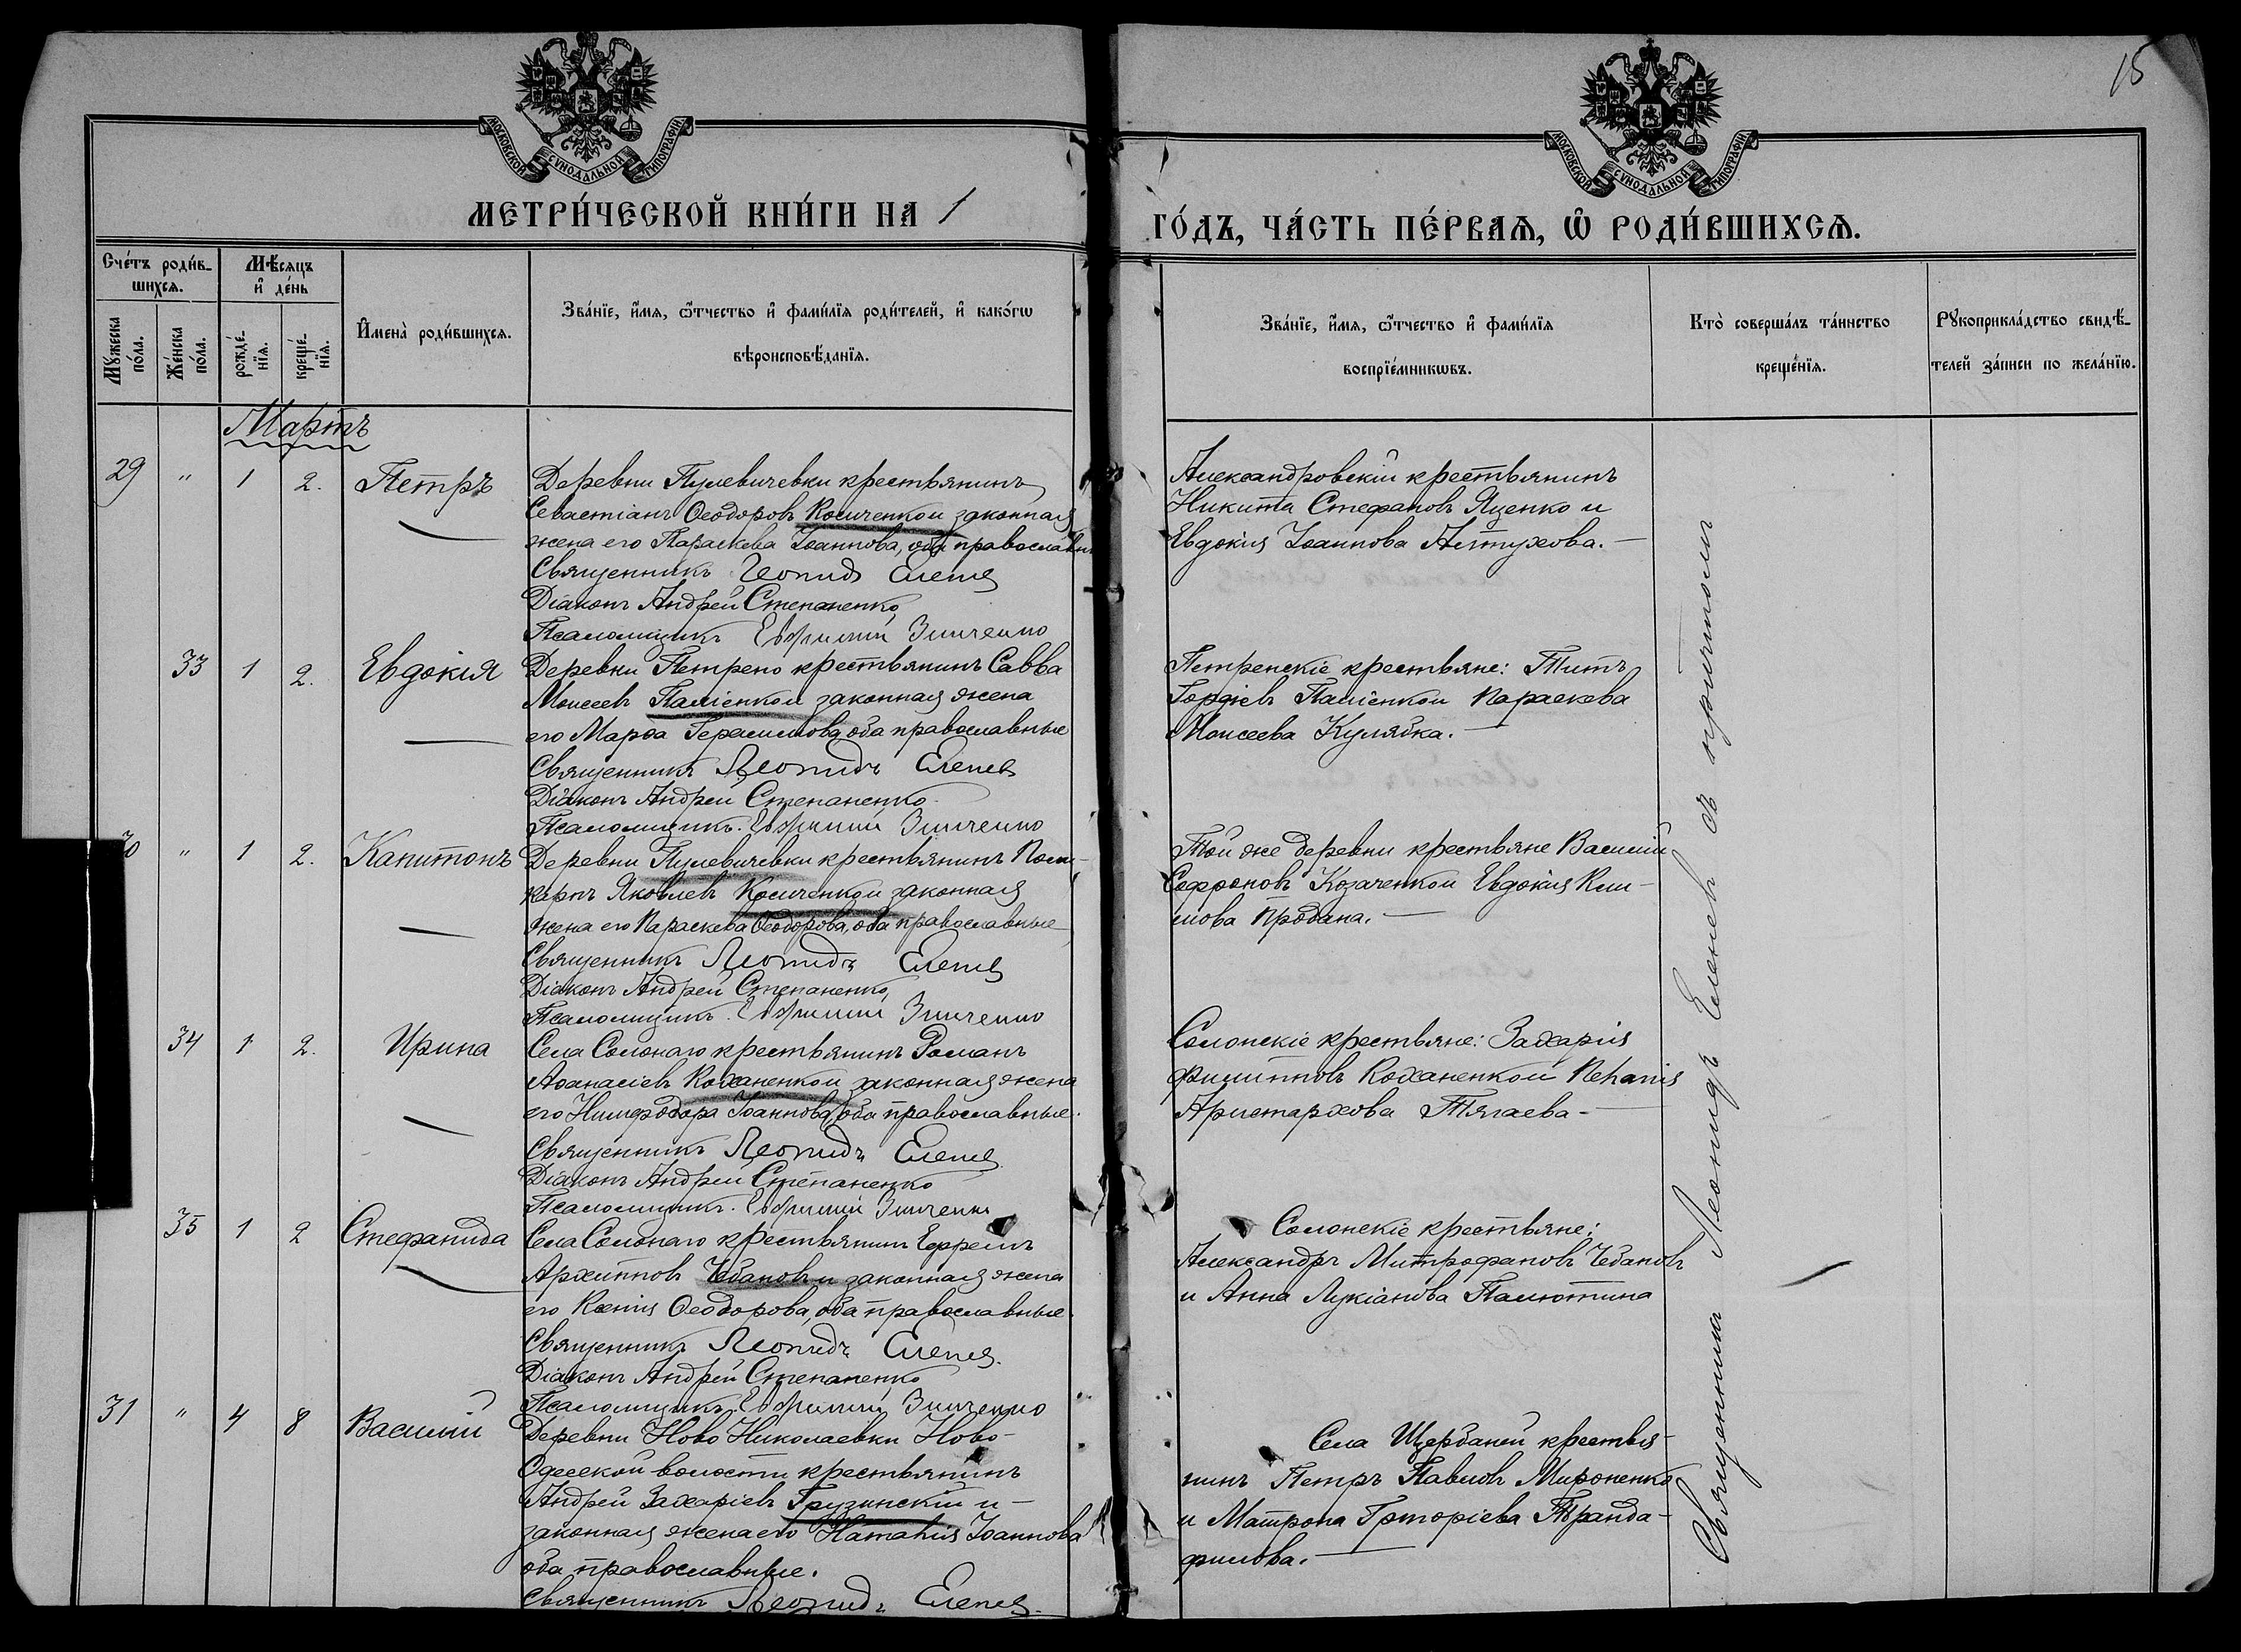 15
МОСКОВСКОЙ СѴНОДАЛЬНОЙ ТИПОГРАФІИ
МОСКОВСКОЙ СѴНОДАЛЬНОЙ ТИПОГРАФІИ
МЕТРИ́ЧЕСКОЙ КНИ́ГИ НА 1
ГО́ДЪ, ЧА́СТЬ ПЕ́РВАѦ, Ѡ҆ РОДИ́ВШИХСѦ.
Сче́тъ роди́в-
шихсѧ.
Мѣ́сѧцъ
и҆ де́нь
Мꙋ́жеска
по́ла.
Же́нска
по́ла.
рожде́-
нїѧ.
креще́-
нїѧ.
И҆мена̀ роди́вшихсѧ.
Зва́нїе, и҆́мѧ, ѻ҆́тчество и҆ фамѝлїѧ роди́телей, и҆ како́гѡ
вѣроисповѣ́данїѧ.
Зва́нїе, и҆́мѧ, ѻ҆́тчество и҆ фами́лїѧ
воспрїе́мникѡвъ.
Кто̀ соверша́лъ та́инство
креще́нїѧ.
Рꙋкоприкла́дство свидѣ́-
телей за́писи по жела́нїю.
Мартъ
29 " 1 2. Петръ
Деревни Пулевичевки крестьянинъ
Севастіанъ Ѳеодоровъ Косиченко и законная
жена его Параскева Іоаннова, оба православн
Священникъ Леонидъ Еленев
Діаконъ Андрей Степаненко
Псаломщикъ Евфимій Зинченко
Александровскій крестьянинъ
Никита Стефановъ Яценко и
Евдокія Іоаннова Петухова.
33 1 2. Евдокія
Деревни Петрено крестьянинъ Савва
Моисеев Паліенко и законная жена
его Марѳа Герасимова, оба православные
Священникъ Леонидъ Еленев
Діаконъ Андрей Степаненко
Псаломщикъ Евфимій Зинченко
Петренскіе крестьяне: Титъ
Гордіевъ Паліенко и Параскева
Моисеева Кулябка.
30 " 1 2. Капитонъ
Деревни Пулевичевки крестьянинъ Поли-
карпъ Яковлевъ Косиченко и законная
жена его Параскева Ѳеодорова, оба православные
Священникъ Леонидъ Еленев
Діаконъ Андрей Степаненко
Псаломщикъ Евфимій Зинченко
Той же деревни крестьяне Василій
Софроновъ Козаченко и Евдокія Кли-
мова Продана.
34 1 2. Ирина
Села Солонаго крестьянинъ Романъ
Аѳанасіевъ Коханенко и законная жена
его Нимфодора Іоаннова, оба православные.
Священникъ Леонидъ Еленев
Діаконъ Андрей Степаненко
Псаломщикъ Евфимій Зинченко
Солонскіе крестьяне: Захарія
Филипповъ Коханенко и
Аристархова Тягаева
35 1 2 Стефанида
Села Солонаго крестьянинъ Ефремъ
Архипповъ Чебановъ и законная жена
его Ксенія Ѳеодорова, оба православные.
Священникъ Леонидъ Еленев
Діаконъ Андрей Степаненко
Псаломщикъ Евфимій Зинченко
Солонскіе крестьяне:
Александръ Митрофановъ Чебановъ
и Анна Лукіанова Палютина
31 " 4 8 Василій
Деревни Ново Николаевки Ново-
Одесской волости крестьянинъ
Андрей Захаріевъ Грузинскій и
законная жена его Наталія Іоаннова
оба православные.
Священникъ Леонидъ Еленев
Села Щербаней крестья-
нинъ Петръ Павловъ Мироненко
и Матрона Григоріева Транда-
филова.
Священникъ Леонидъ Еленевъ съ причтомъ